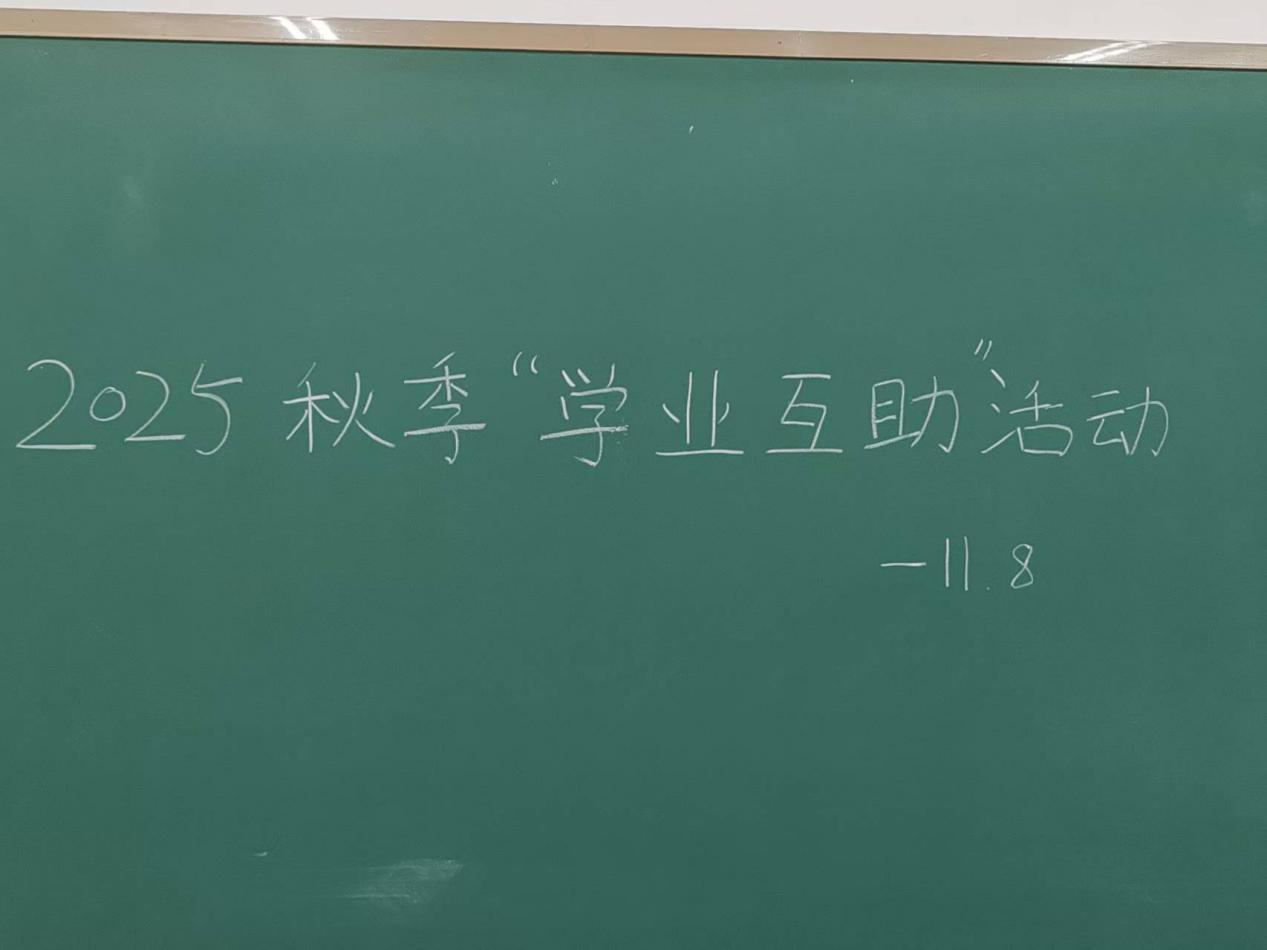 2025 秋季“学业互助”活动
—11.8